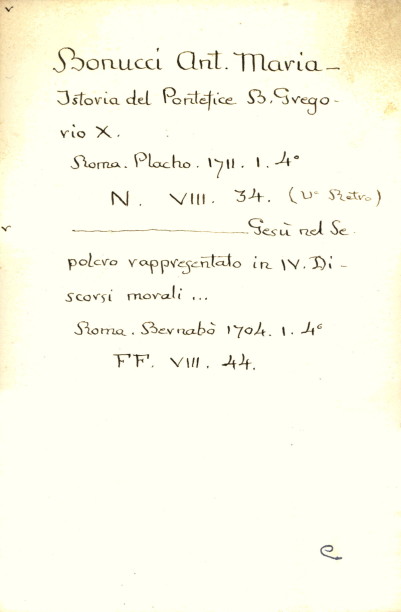 Bonucci Ant. Maria -
Istoria del Pontefice B. Grego-
rio X.
Roma. Placho. 1711. 1. 4°
N. VIII. 34. (Vº Retro)
Gesù nel Se-
polcro rappresentato in IV. Di-
scorsi morali ...
Roma. Bernabò 1704. 1. 4°
FF. VIII. 44.
e